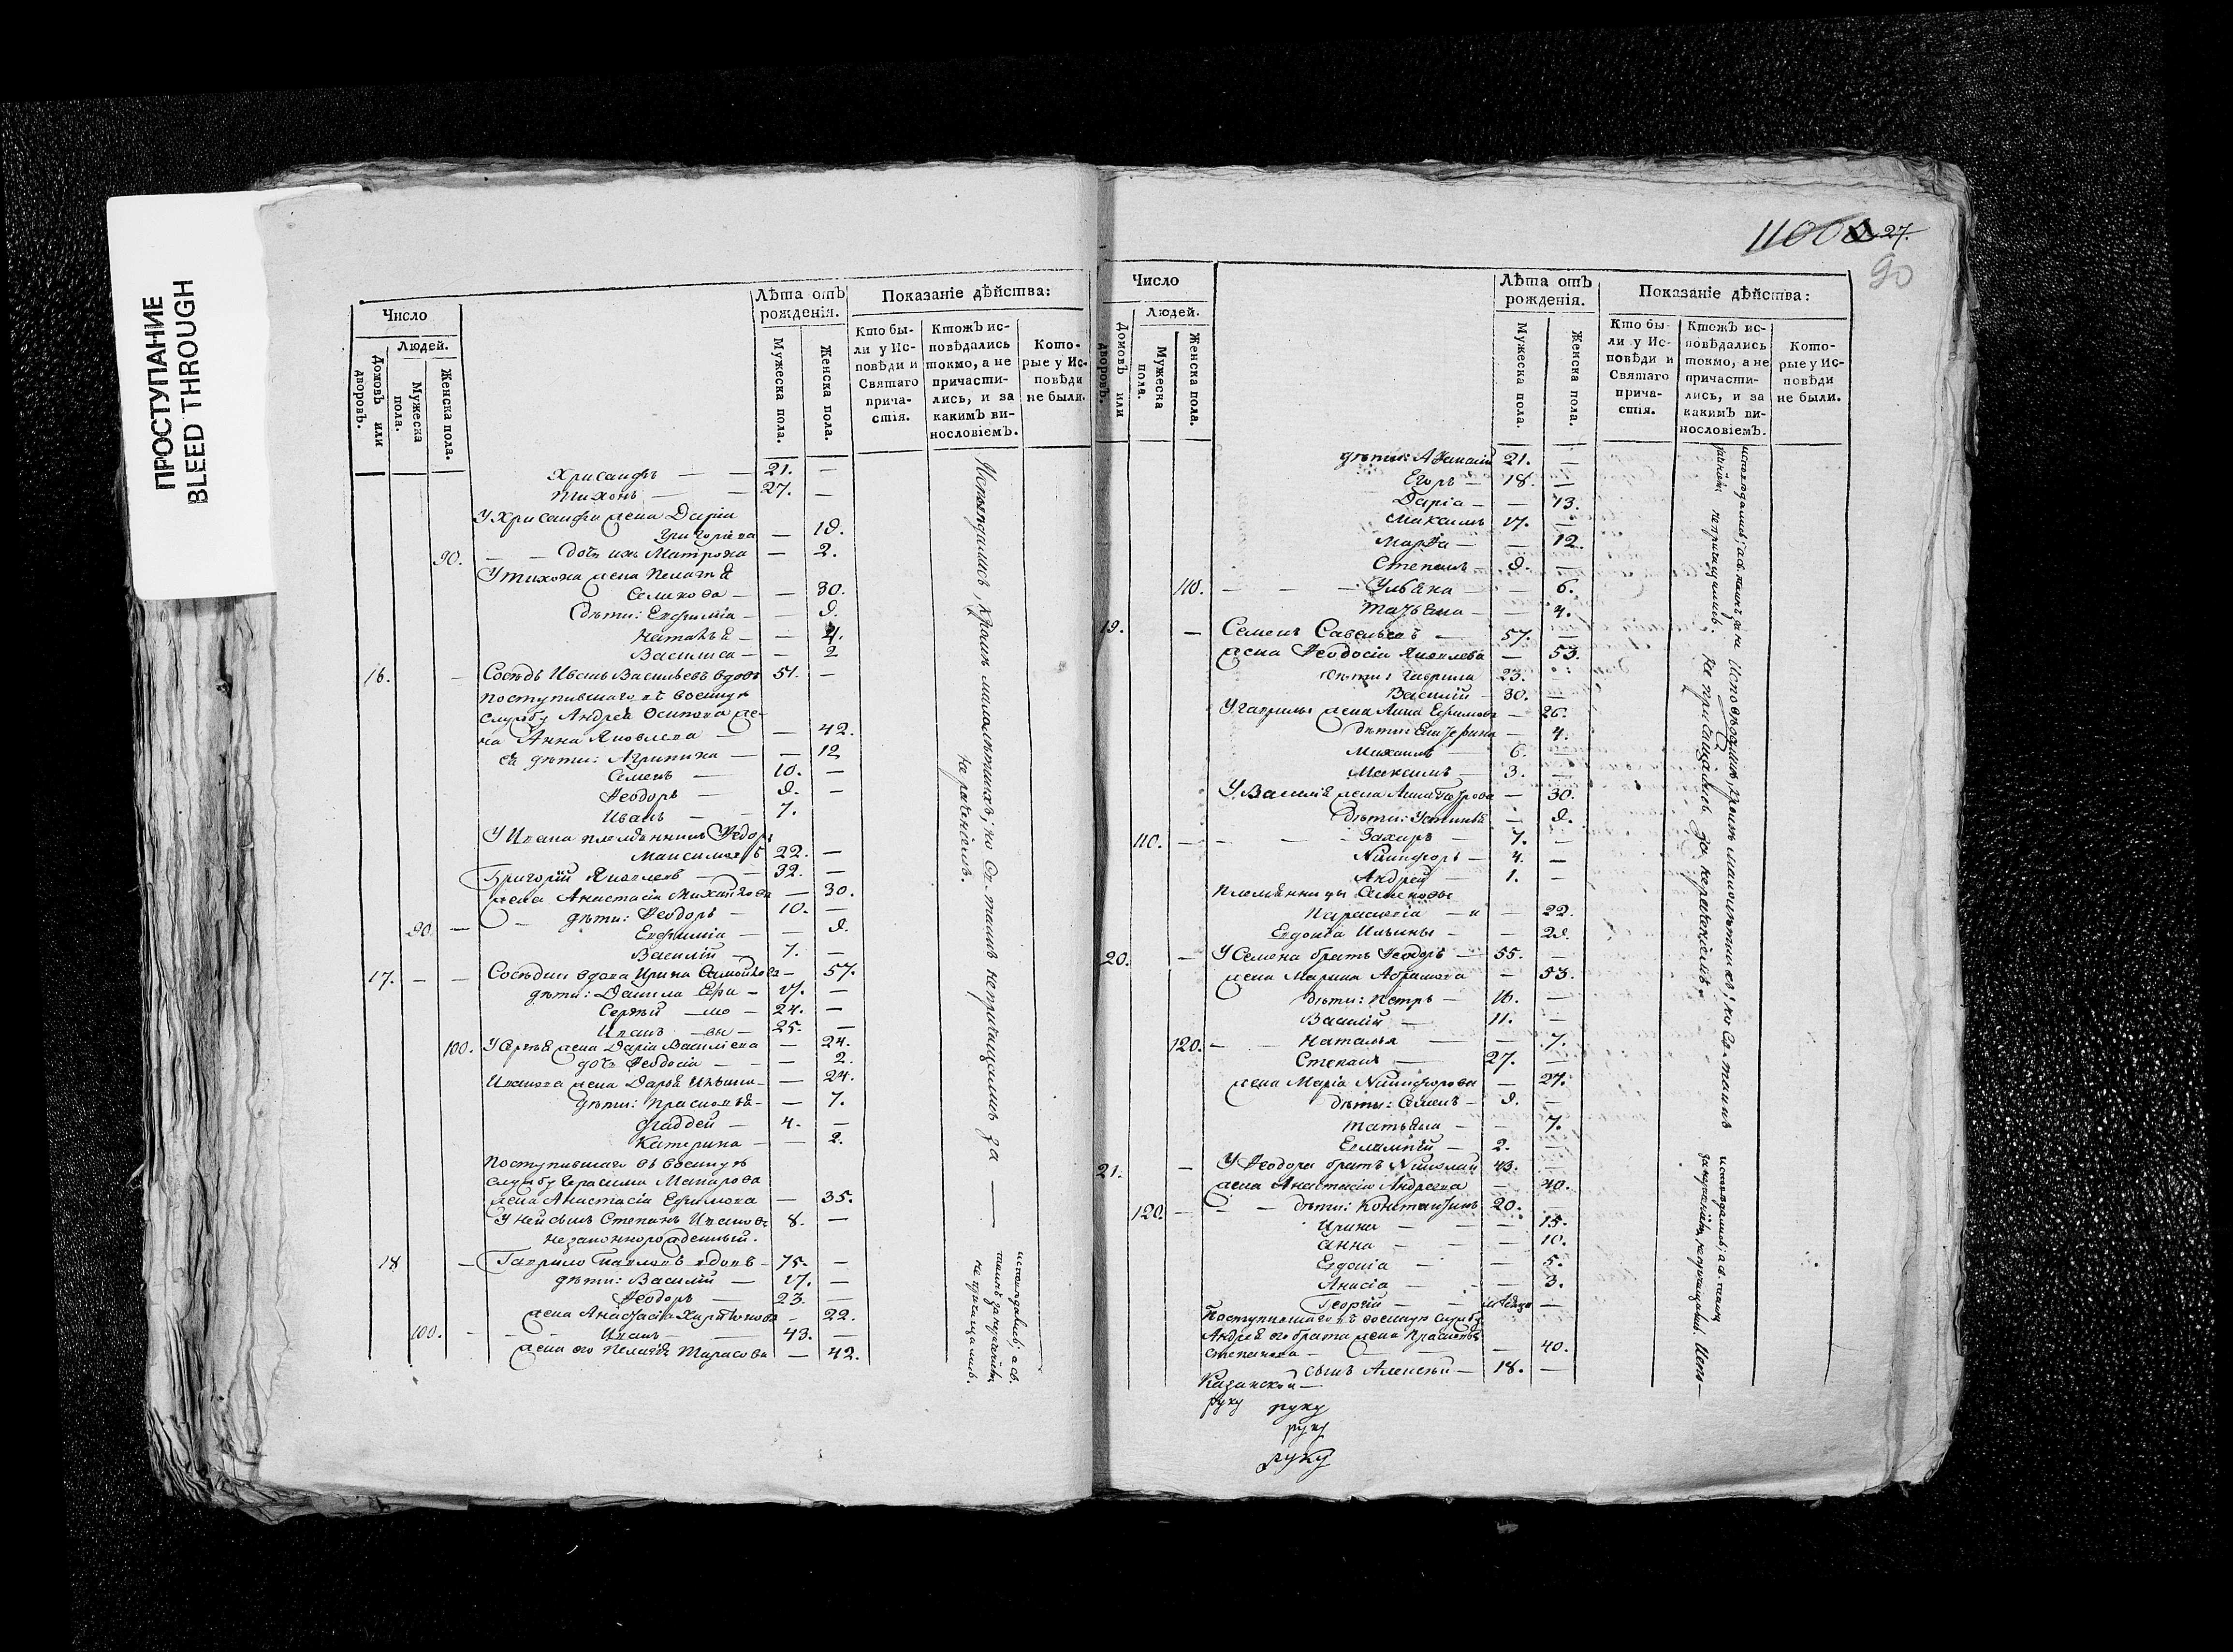 ПРОСТУПАНИЕ
BLEED THROUGH
Число
Людей.
Домовъ или дворовъ.
Мужеска пола.
Женска пола.
Лѣта отъ рожденія.
Мужеска пола.
Женска пола.
Показаніе дѣйства:
Кто бы-
ли у Ис-
повѣди и
Святаго
прича-
стія.
Ктожъ ис-
повѣдались
токмо, а не
причасти-
лись, и за
какимъ ви-
нословіемъ.
Кото-
рые у Ис-
повѣди
не были.
Хрисанфъ — — 21. —
Тихонъ — — 27. —
У Хрисанфа жена Дарія
Григоріева — 19.
90. — — дочь ихъ Матрона — 2.
У Тихона жена Пелагѣя
— 30.
Дѣти: Евфимія — — 9.
Наталья — — 4.
Василиса — — 2
16. — Сосѣдъ Иванъ Васильевъ вдовъ 51. —
Поступившаго въ военную
службу Андрея Осипова же-
на Анна Яковлева — — 42.
Ея дѣти: Агрипина — — 12
Семенъ — 10. —
Ѳеодоръ — 9. —
Иванъ — 7.
У Ивана племянникъ Ѳедоръ
Максимовъ 22. —
Григорій Яковлевъ — — 32. —
жена Анастасія Михайлова — 30.
— дѣти: Ѳеодоръ — 10. —
90. — Евфимія — — 9.
Василій — 7. —
17. — — Сосѣдки вдова Ирина Самойлова — 57.
дѣти: Данила Ефи — 17. —
Сергѣй — мо — 24. —
Иванъ — вы — 25. —
100. У Сергѣя жена Дарія Васильева — 24.
дочь Ѳеодосія — — 2.
Иванова жена Дарья Ильина — — 24.
дѣти: Прасковья — — 7.
Фаддей — 4. —
Катерина — — 2.
Поступившаго въ военную
службу Герасима Макарова
жена Анастасія Ефимова — 35.
У ней сынъ Степанъ Ивановъ 8. —
незаконнорожденный.
18. — Гаврило Павловъ вдовъ — 75. —
дѣти: Василій — 17. —
Ѳеодоръ — 23. —
жена Анастасія Харитонова — 22.
100. — — Иванъ — — 43. —
жена его Пелагѣя Тарасова — 42.
Исповѣдались, кромѣ малолѣтныхъ; но Св. таинъ не причащались за —
нераченіемъ.
исповѣдались; а св.
таинъ за
не причащались.
27.
90
Число
Людей.
Домовъ или дворовъ.
Мужеска пола.
Женска пола.
Лѣта отъ рожденія.
Мужеска пола.
Женска пола.
Показаніе дѣйства:
Кто бы-
ли у Ис-
повѣди и
Святаго
прича-
стія.
Ктожъ ис-
повѣдались
токмо, а не
причасти-
лись, и за
какимъ ви-
нословіемъ.
Кото-
рые у Ис-
повѣди
не были.
дѣти: Аѳанасій 21. —
Егоръ — 18. —
Дарія — — 13.
Максимъ 17. —
Марѳа — — 12.
Степанъ — 9. —
110. — — — Ульяна — — 6.
Татьяна — — 4.
19. — Семенъ Савельевъ — 57. —
жена Ѳеодосія Яковлева — 53.
дѣти: Гаврила 23.
Василій — 30. —
У Гаврилы жена Анна Ефимова — 26.
дѣти: Екатерина — 4.
Михаилъ — 6. —
Максимъ — 3. —
У Василія жена Анна Петрова — 30.
Дѣти: Устинья — 9.
110. — — — Захаръ — 7. —
Никифоръ — 4. —
Андрей — 1. —
Племянницы Семеновы
Параскевія — — 22.
Евдокія Ильины — — 29.
20. — У Семена братъ Ѳеодоръ — 55. —
жена Марина Абрамова — 53.
Дѣти: Петръ — 16. —
Василій — 11. —
120. — — Наталья — — 7.
Степанъ — 27. —
жена Марія Никифорова — 27.
дѣти: Семенъ — 9. —
Татьяна — — 7.
Евлампій — 2. —
21. — У Ѳеодора братъ Николай 43. —
жена Анастасія Андреева — 40.
120. — — — дѣти: Константинъ 20. —
Ирина — — 15.
Анна — — — 10.
Евдокія — — 5.
Анисія — — 3.
Георгій — —
Поступившаго въ военную службу
Андрея его брата жена Прасковья
Степанова — — — 40.
сынъ Алексѣй — 18. —
Казанской —
руку руку
руку
руку
исповѣдались; а св. таинъ за не-
не причащались.
Исповѣдались, кромѣ малолѣтныхъ; но Св. таинъ
не причащались за нераченіемъ.
исповѣдались; а св. таинъ
не причащались. Испо—